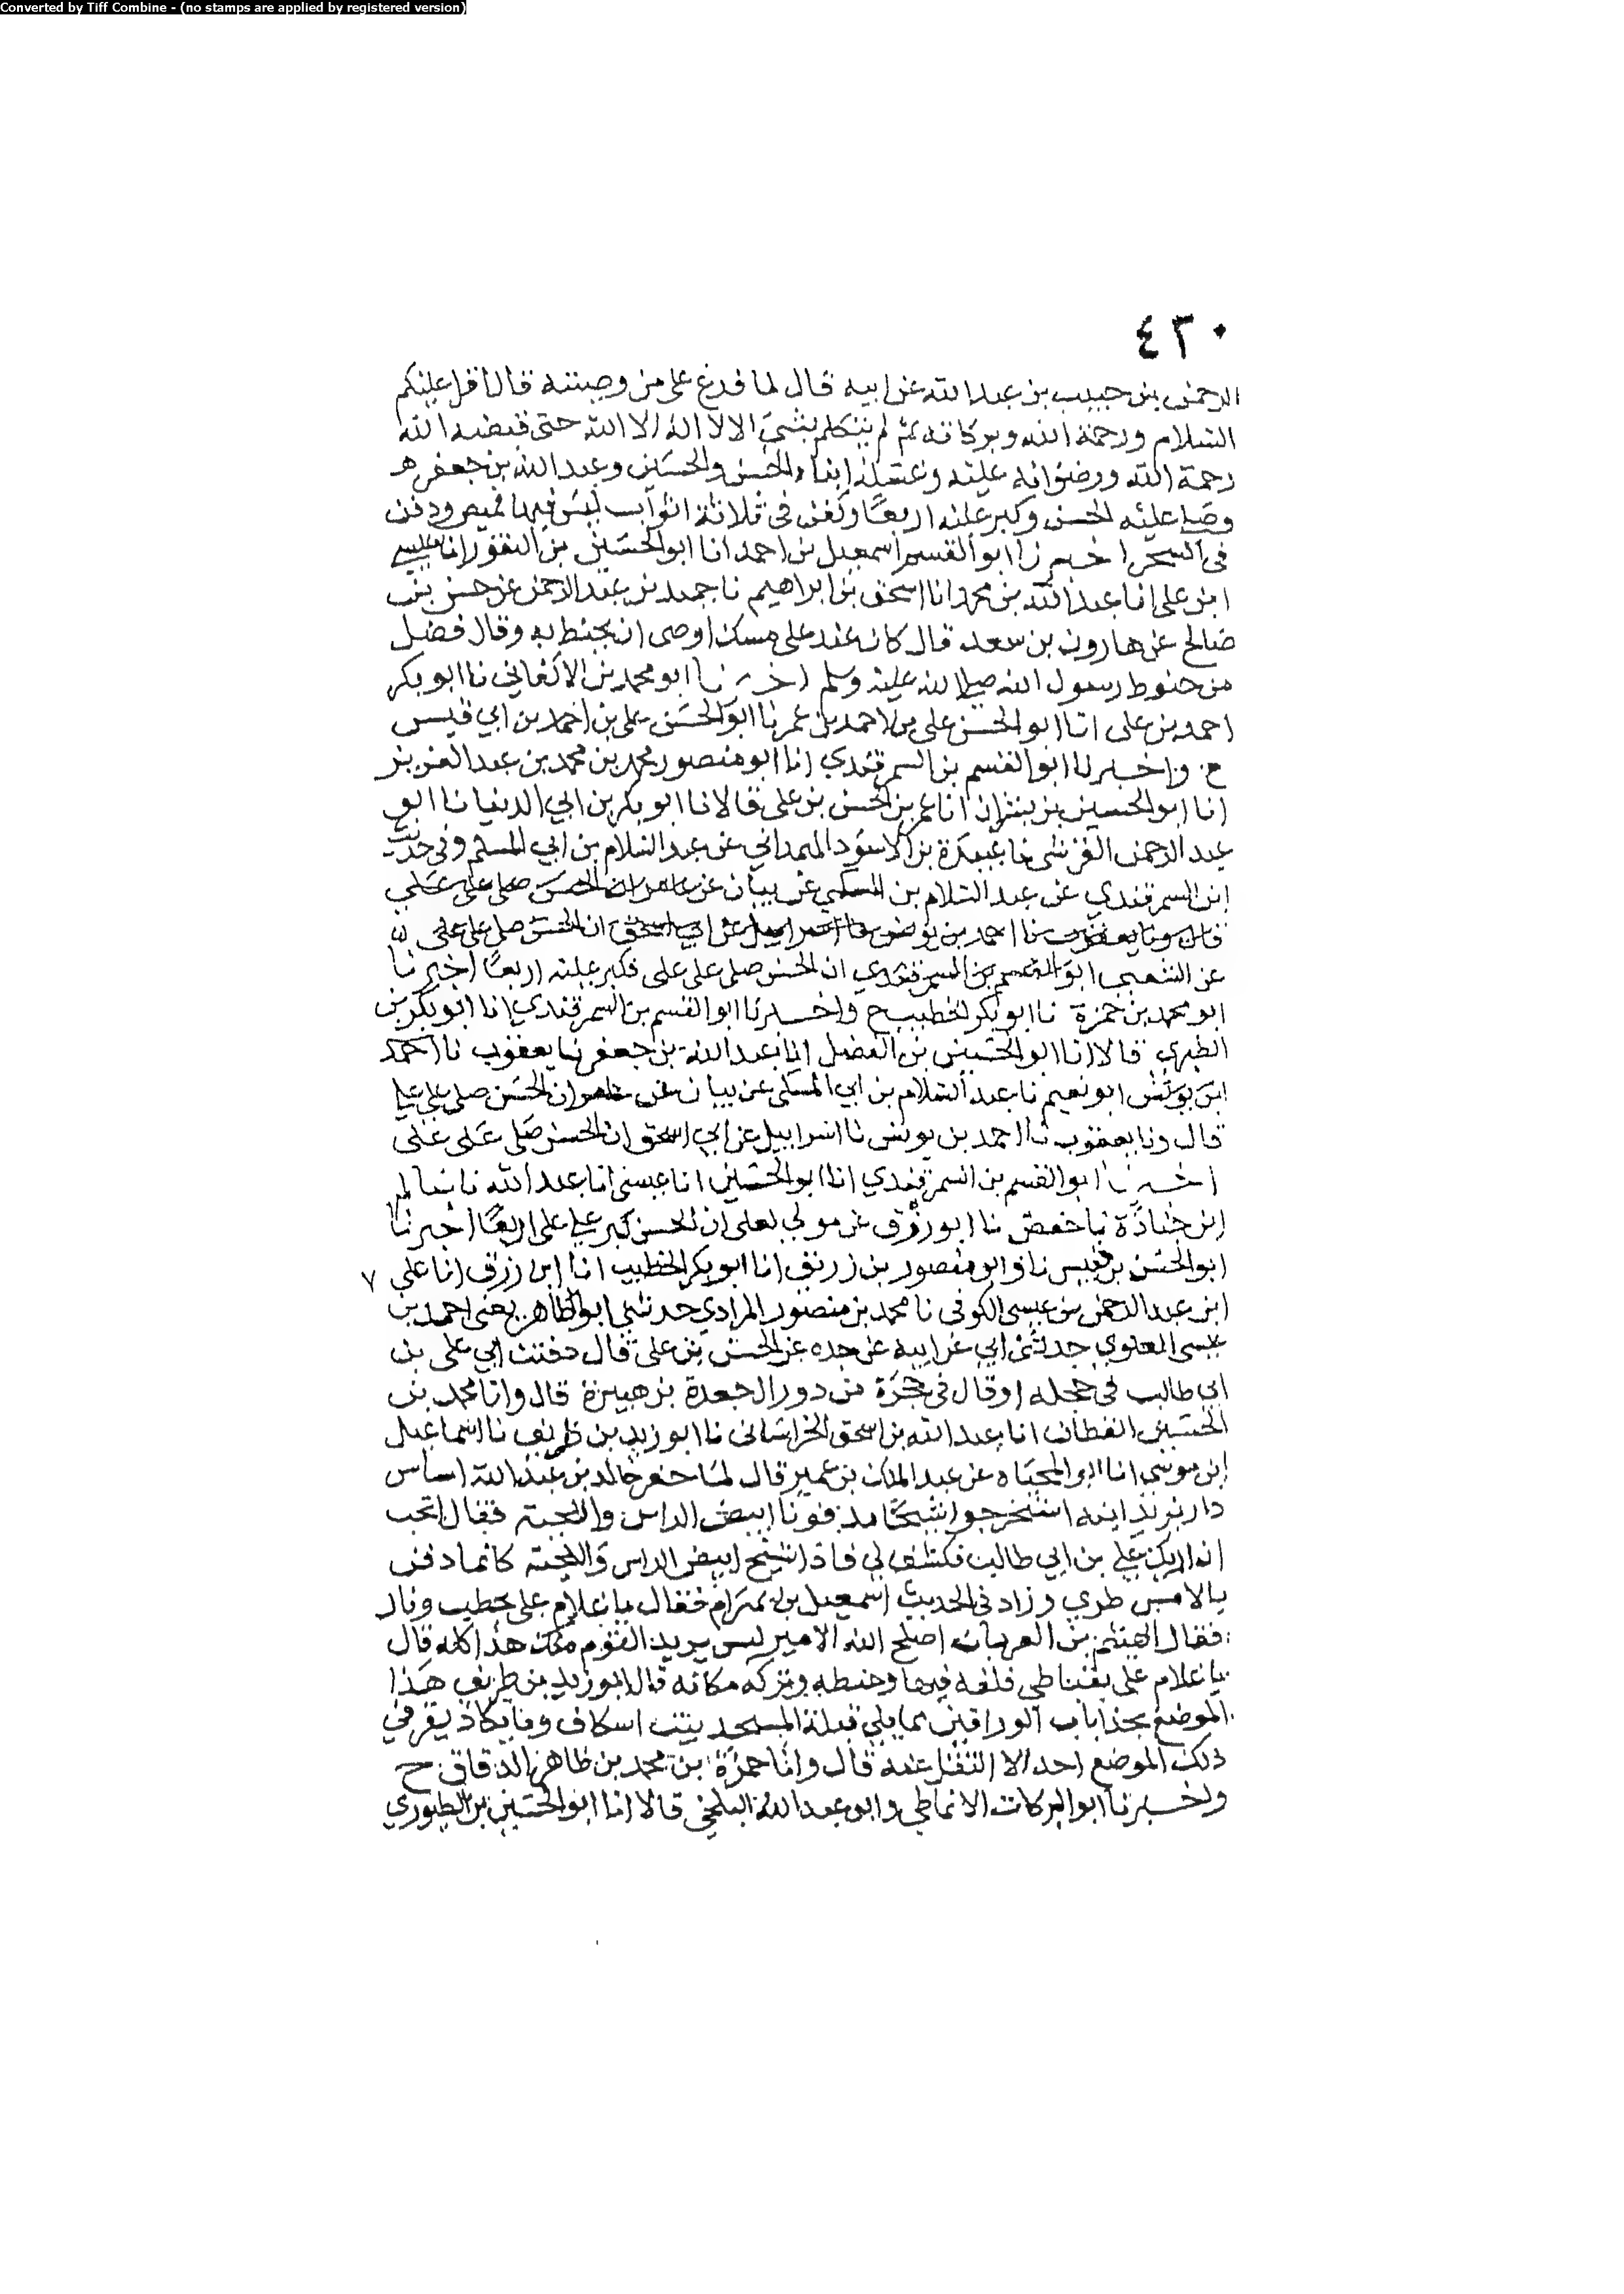 Converted by Tiff Combine - (no stamps are applied by registered version)
٤٣٠
الرحمن بن حبيب بن عبد الله عن ابيه قال لما فرغ على من وصيته قال اقرا عليكم
السلام ورحمة الله وبركاته ثم لم يتكلم بشي الا لا اله الا الله حتى قبضه الله
رحمة الله ورضوانه عليه وغسله ابناه الحسن والحسين وعبد الله بن جعفر
وصلى عليه الحسن وكبر عليه اربعا وكفن فى ثلاثة اثواب ليس فيها قميص ودفن
فى السحر اخبرنا ابو القسم اسمعيل بن احمد انا ابو الحسين بن النقور انا عيسى
ابن على انا عبد الله بن محمد انا اسحق بن ابراهيم نا حميد بن عبد الرحمن عن حسن بن
صالح عن هارون بن سعد قال كان عند على مسك اوصى ان يحنط به وقال فضل
من حنوط رسول الله صلى الله عليه وسلم اخبرنا ابو محمد بن الاكفاني نا ابو بكر
احمد بن على انا ابو الحسن على بن احمد بن عمر نا ابو الحسن على بن احمد بن ابي قيس
ح واخبرنا ابو القسم بن السمرقندي انا ابو منصور محمد بن محمد بن عبد العزيز
انا ابو الحسين بن بشران انا عمر بن الحسن بن على قالا نا ابو بكر بن ابي الدنيا نا ابو
عبد الرحمن القرشى نا بن الاسود الهمداني عن عبد السلام بن ابي المسلم وفى حديث
ابن السمرقندي عن عبد السلام بن عن بيان عن عامر ان الحسن صلى على على
قال ونا يعقوب نا احمد بن يونس نا اسراييل عن ابي اسحق ان الحسن صلى على على
عن الشعبي ابو القسم بن السمرقندي ان الحسن صلى على على فكبر عليه اربعا اخبرنا
ابو محمد بن حمزة نا ابو بكر الخطيب ح واخبرنا ابو القسم بن السمرقندي انا ابو بكر بن
الطبري قالا انا ابو الحسين بن الفضل انا عبد الله بن جعفر نا يعقوب نا احمد
ابن يونس ابو نعيم نا عبد السلام بن ابي المسلى عن بيان عن عامر ان الحسن صلى على على
قال ونا يعقوب نا احمد بن يونس نا اسراييل عن ابي اسحق ان الحسن صلى على على
اخبرنا ابو القسم بن السمرقندي انا ابو الحسين انا عيسى انا عبد الله نا سالم
ابن جنادة نا حفص نا ابو روق عن مولي لعلى ان الحسن كبر على على اربعا اخبرنا
ابو الحسن بن قبيس نا وابو منصور بن زريق انا ابو بكر الخطيب انا ابن رزق انا على ٧
ابن عبد الرحمن بن عيسى الكوفى نا محمد بن منصور المرادي حدثني ابو الطاهر يعنى احمد بن
عيسى العلوي حدثنى ابي عن ابيه عن جده عن الحسن بن على قال دفنت ابي على بن
ابي طالب فى حجله او قال فى حجرة من دور ال جعدة بن هبيرة قال وانا محمد بن
الحسين القطان انا عبد الله بن اسحق الخراساني نا ابو زيد بن طريف نا اسماعيل
ابن موسى انا ابو المحياه عن عبد الملك بن عمير قال لما حفر خالد بن عبد الله اساس
دار يزيد ابنه استخرجوا شيخا مدفونا ابيض الراس واللحية فقال اتحب
ان اريك على بن ابي طالب فكشف لي فاذا شيخ ابيض الراس واللحية كانما دفن
بالامس طري وزاد فى الحديث اسمعيل بن بهرام فقال يا غلام على بحطب ونار
فقال الهيثم بن العريان اصلح الله الامير ليس يريد القوم منك هذا كله قال
يا غلام على بقباطي فلفه فيها وحنطه وتركه مكانه قال ابو زيد بن طريف هذا
الموضع بحذا باب الوراقين مما يلي قبلة المسجد بيت اسكاف وما يكاد يقر في
ذلك الموضع احد الا انتقل عنه قال وانا حمزة بن محمد بن طاهر الدقاق ح
واخبرنا ابو البركات الانماطي وابو عبد الله البلخي قالا انا ابو الحسين بن الطيوري